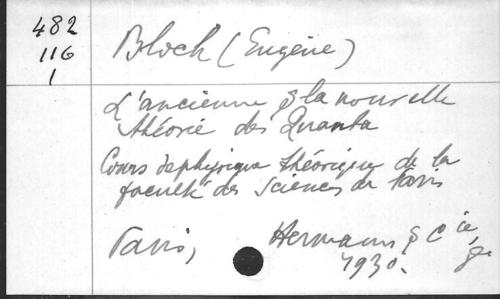 482
116
1
Bloch (Eugène)
L'ancienne & la nouvelle
théorie des Quanta
Cours de physique théorique de la
faculté des Sciences de Paris
Paris, Hermann & Cie,
1930.